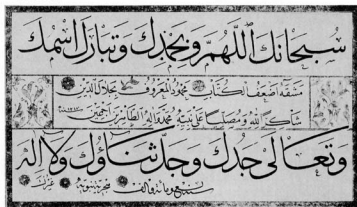 سبحانك اللهم وبحمدك وتبارك اسمك
مشقه اضعف الكتاب محمود المعروف بجلال الدين
الله ومصليا على نبيه محمد واله الطاهرين اجمعين
وتعالى جدك وجل ثناؤك ولا اله
غيرك